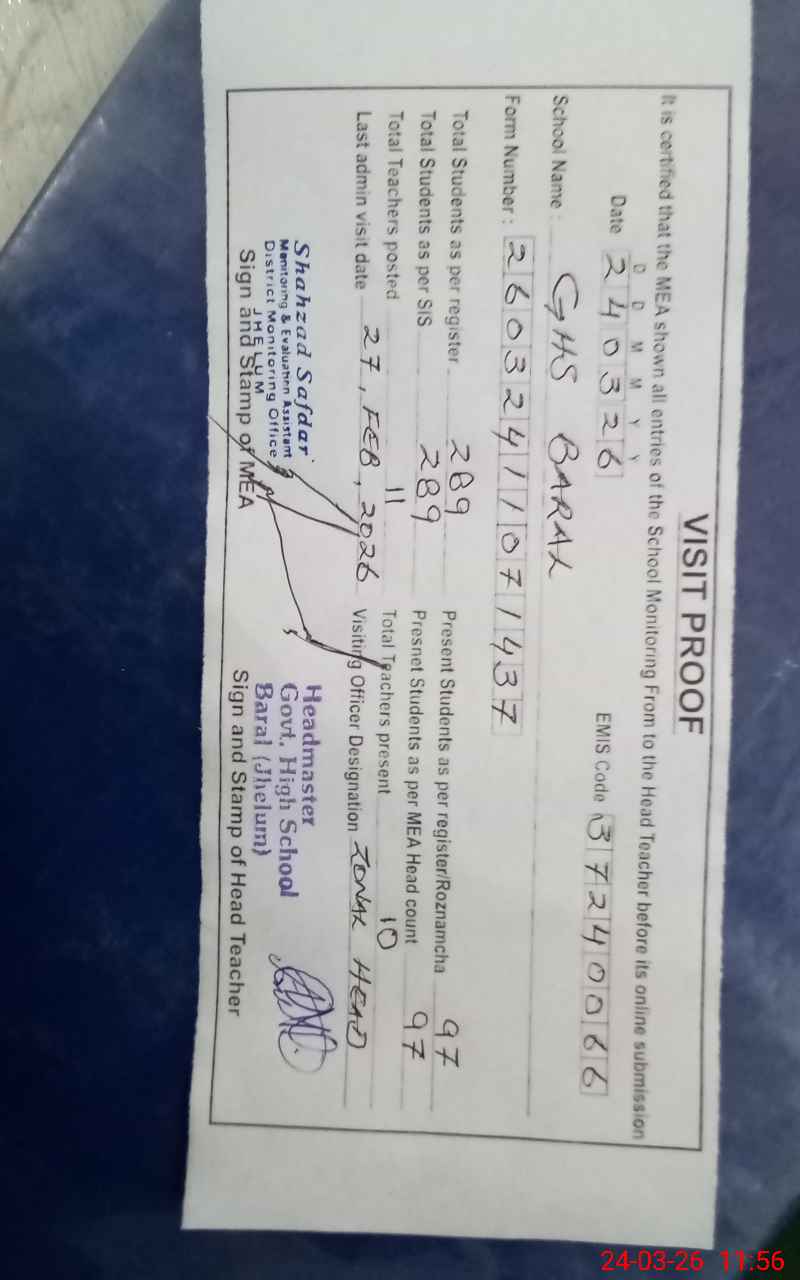 VISIT PROOF
It is certified that the MEA shown all entries of the School Monitoring From to the Head Teacher before its online submission
D D M M Y Y
Date 240326 EMIS Code 37240066
School Name : GHS BARAL
Form Number : 26032411071437
Total Students as per register 289 Present Students as per register/Roznamcha 97
Total Students as per SIS 289 Presnet Students as per MEA Head count 97
Total Teachers posted 11 Total Teachers present 10
Last admin visit date 27, FEB, 2026 Visiting Officer Designation ZONAL HEAD
Shahzad Safdar
Monitoring & Evaluation Assistant
District Monitoring Office
JHELUM
Sign and Stamp of MEA
Headmaster
Govt. High School
Baral (Jhelum)
Sign and Stamp of Head Teacher
24-03-26 11:56